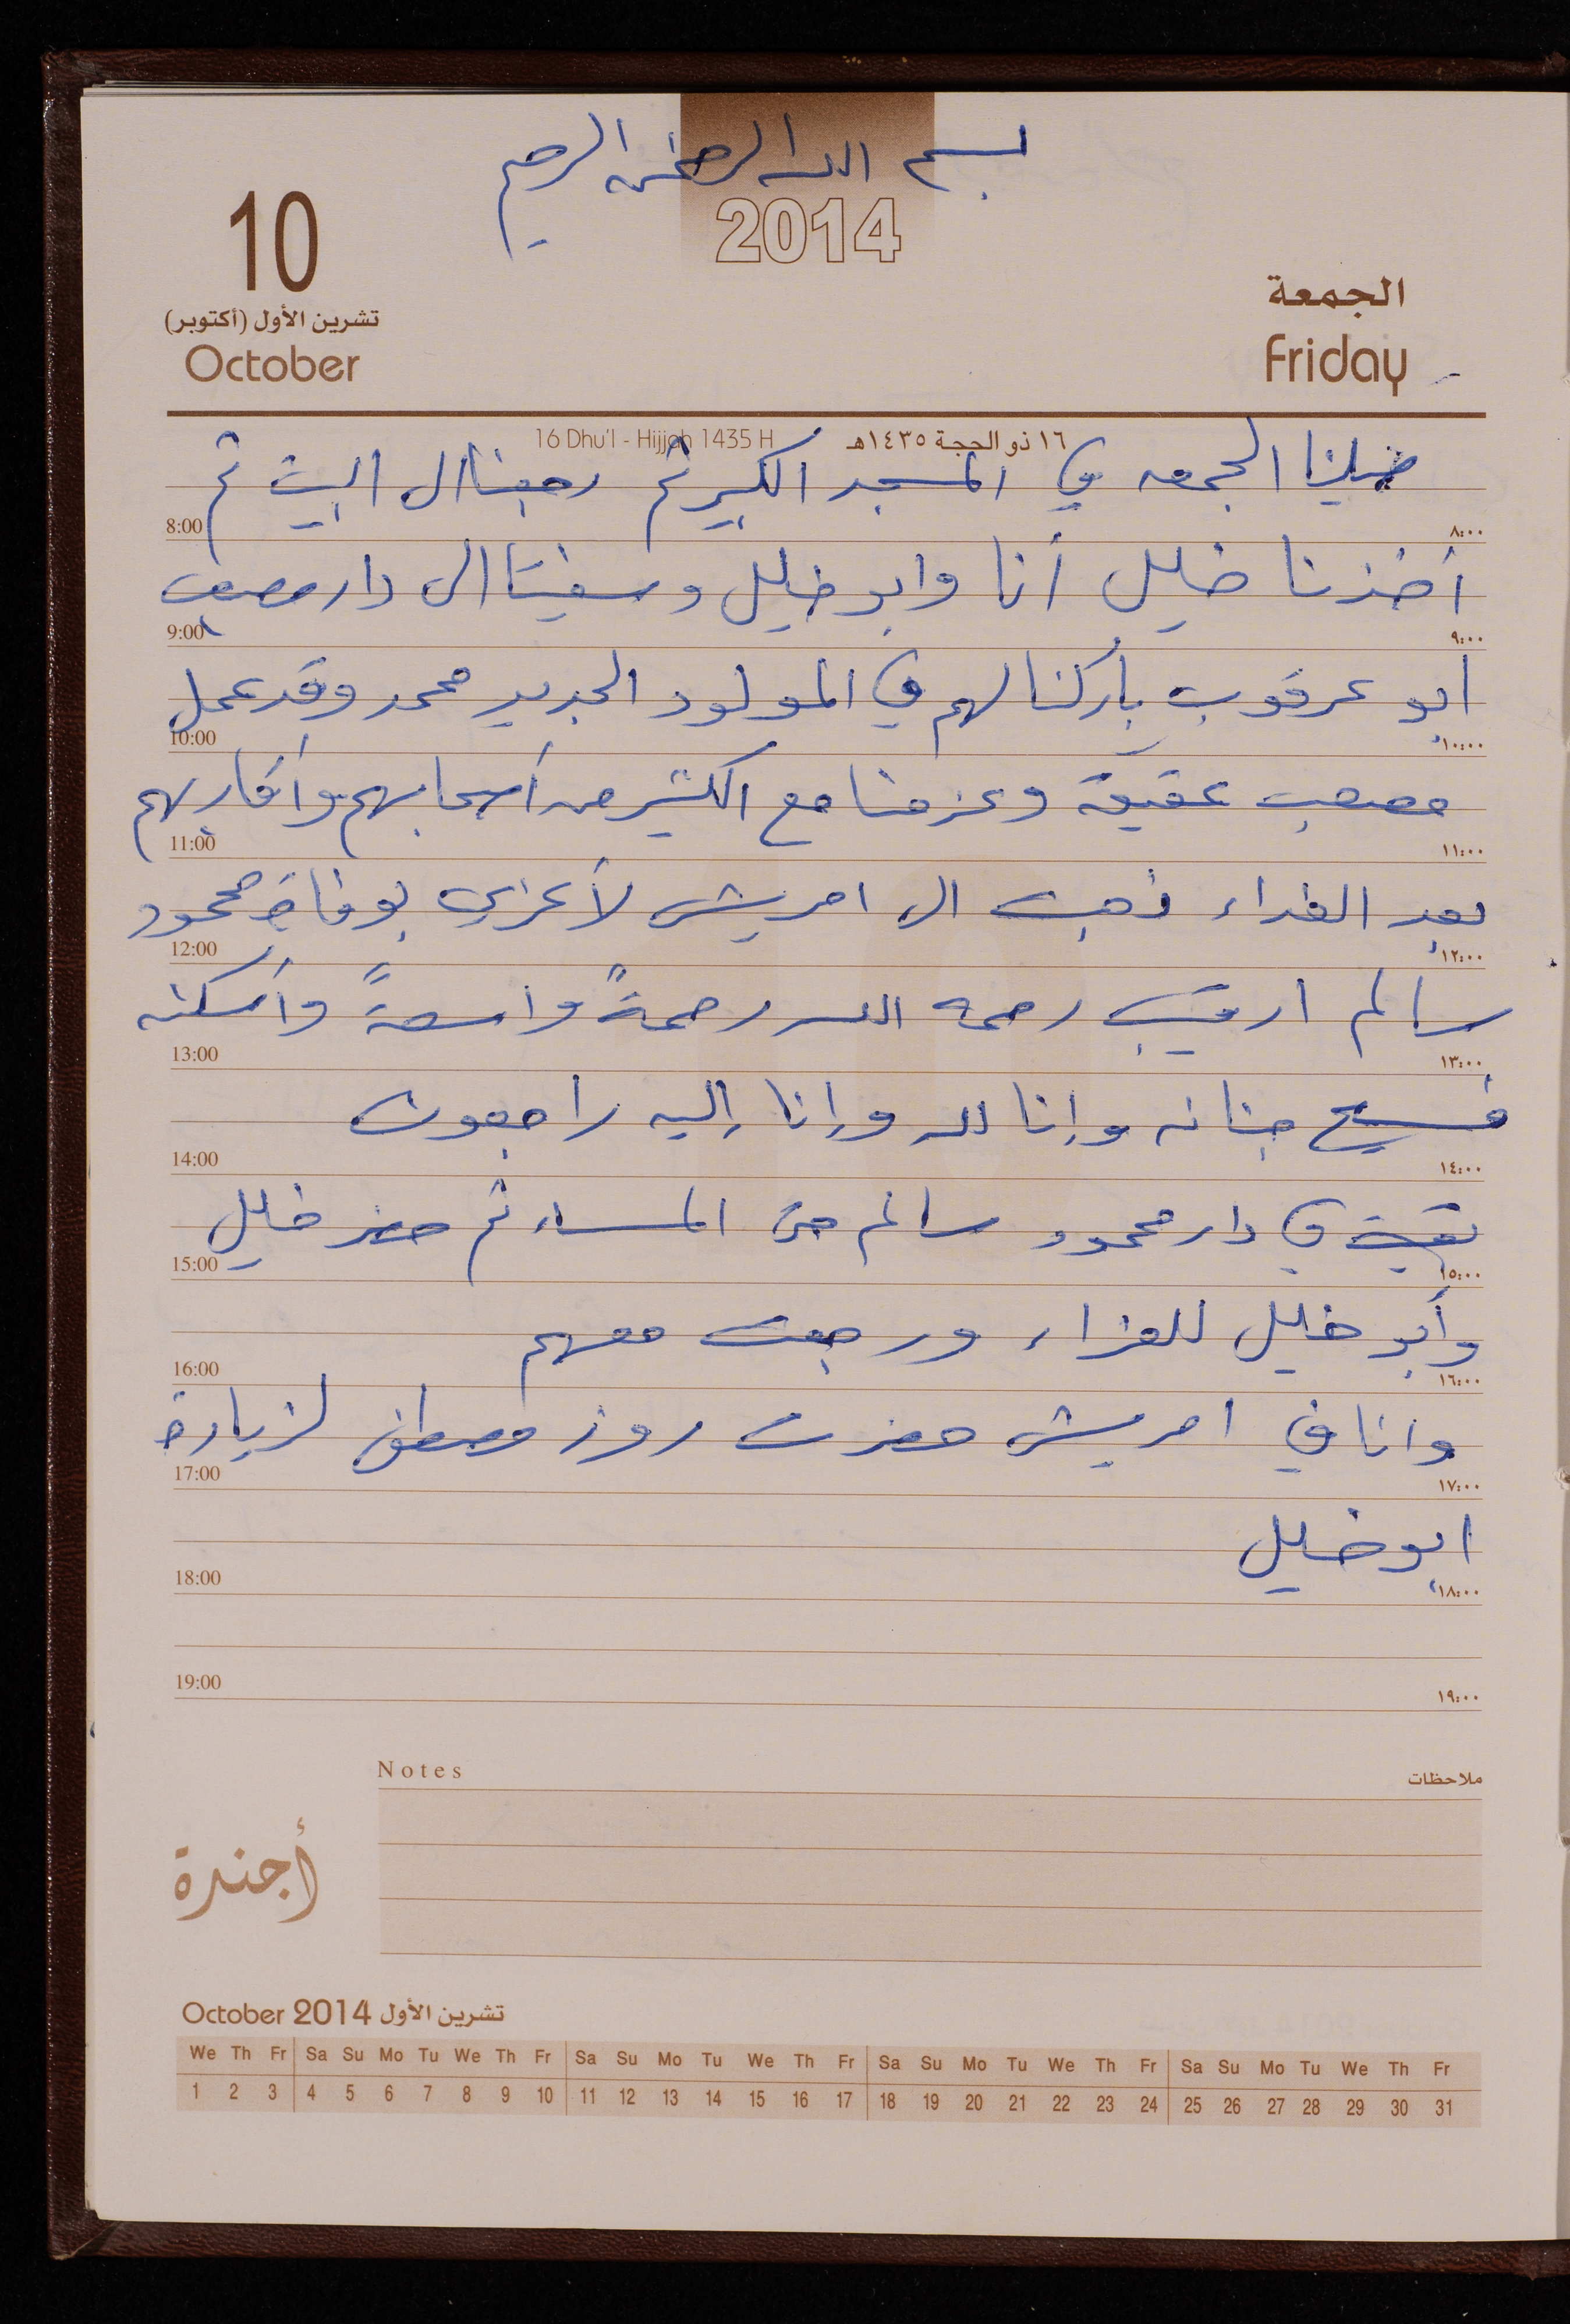 بسم الله الرحمن الرحيم
2014
10
تشرين الأول (أكتوبر)
October
الجمعة
Friday
16 Dhu'l - Hijjah 1435 H ١٦ ذو الحجة ١٤٣٥هـ
صلينا الجمعه في المسجد الكبير ثم رجعنا الى البيت ثم
8:00 ٨:٠٠
أخذنا خليل أنا وابو خليل وسفيتا الى دار مصعب
9:00 ٩:٠٠
ابو عرقوب باركنا لهم في المولود الجديد محمد وقد عمل
10:00 ١٠:٠٠
مصعب عقيقة وعزمنا مع الكثير من أصحابهم وأقاربهم
11:00 ١١:٠٠
بعد الغداء ذهبت الى امريش لأعزي بوفاة محمود
12:00 ١٢:٠٠
سالم رحمه الله رحمةً واسعةً وأسكنه
13:00 ١٣:٠٠
فسيح جنانه وإنا لله وإنا إليه راجعون
14:00 ١٤:٠٠
بقيت في دار محمود سالم حتى المساء ثم حضر خليل
15:00 ١٥:٠٠
وأبو خليل للعزاء ورجعت معهم
16:00 ١٦:٠٠
وانا في امريش حضرت روز مصطفى لزيارة
17:00 ١٧:٠٠
ابو خليل
18:00 ١٨:٠٠
19:00 ١٩:٠٠
Notes ملاحظات
أجندة
October 2014 تشرين الأول
We Th Fr Sa Su Mo Tu We Th Fr Sa Su Mo Tu We Th Fr Sa Su Mo Tu We Th Fr Sa Su Mo Tu We Th Fr
1 2 3 4 5 6 7 8 9 10 11 12 13 14 15 16 17 18 19 20 21 22 23 24 25 26 27 28 29 30 31